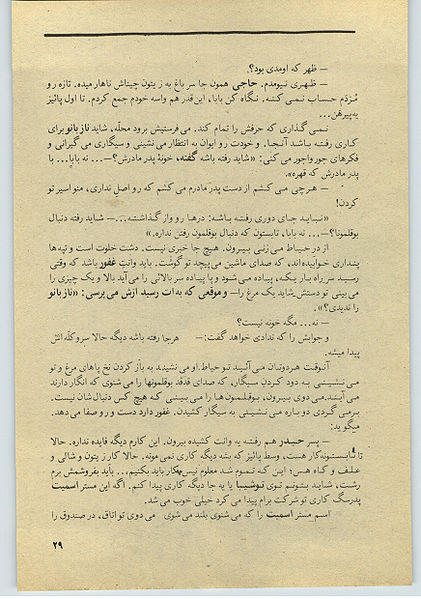 — ظهر که اومدی بود؟.
— ظهری نیومدم. حاجی همون جا سر باغ به زیتون چیناش ناهار میده. تازه رو
مُزدم حساب نمی کنه. نگاه کن بابا، این قدر هم واسه خودم جمع کردم. تا اول پائیز
یه پیرهن...
نمی گذاری که حرفش را تمام کند. می فرستیش برود محله، شاید نازبانو برای
کاری رفته باشد آنجا. و خودت رو ایوان به انتظار می نشینی و سیگاری می گیرانی و
فکرهای جور واجور می کنی: «شاید رفته باشه گفته، خونهٔ پدر مادرش؟ —... نه بابا... با
پدر مادرش که قهره».
— هرچی می کشم از دست پدر مادرم می کشم که رو اصل نداری، منو اسیر تو
کردن!
«نباید جای دوری رفته باشه: درها رو واز گذاشته...— شاید رفته دنبال
بوقلمونا؟ —... نه بابا، تابستون که دنبال بوقلمون رفتن نداره.»
از در حیاط می زنی بیرون. هیچ جا خبری نیست. دشت خلوت است و تپه ها
پنداری خوابیده اند، که صدای ماشین می پیچد تو گوشت. باید وانت غفور باشد که وقتی
رسید سر راه باریکه، پیاده می شود و پا پیاده سر بالائی را می آید بالا و یک چیزی را
می بینی تو دستش. شاید یک مرغ را — و موقعی که به ات رسید ازش می پرسی: «نازبانو
را ندیدی؟».
— نه... مگه خونه نیست؟
و جوابش را که ندادی خواهد گفت:— هرجا رفته باشه دیگه حالا سر و کله اش
پیدا میشه.
آنوقت هردوتان می آئید تو حیاط. او می نشیند به باز کردن نخ پاهای مرغ و تو
می نشینی به دود کردن سیگار، که صدای قدقد بوقلمونها را می شنوی که انگار دارند
می آیند. می دوی بیرون، بوقلمونها را می بینی که هیچ کس دنبال شان نیست.
برمی گردی دوباره می نشینی به سیگار کشیدن. غفور دارد دست و رو صفا می دهد.
میگوید:
— پسر حیدر هم رفته یه وانت کشیده بیرون. این کارم دیگه فایده نداره. حالا
تا تابستونه کار هست، وسط پائیز که بشه دیگه کاری نمی مونه. حالا کار زیتون و شالی و
علف و کاه هس؛ این که تموم شد معلوم نیس چکار باید بکنیم... باید بفروشمش برم
رشت، شاید بتونم توی توشیبا یا یه جا دیگه کاری پیدا کنم. اگه این مستر اسمیت
پدرسگ کاری تو شرکت برام پیدا می کرد خیلی خوب می شد.
اسم مستر اسمیت را که می شنوی بلند می شوی می دوی تو اتاق، در صندوق را
۲۹